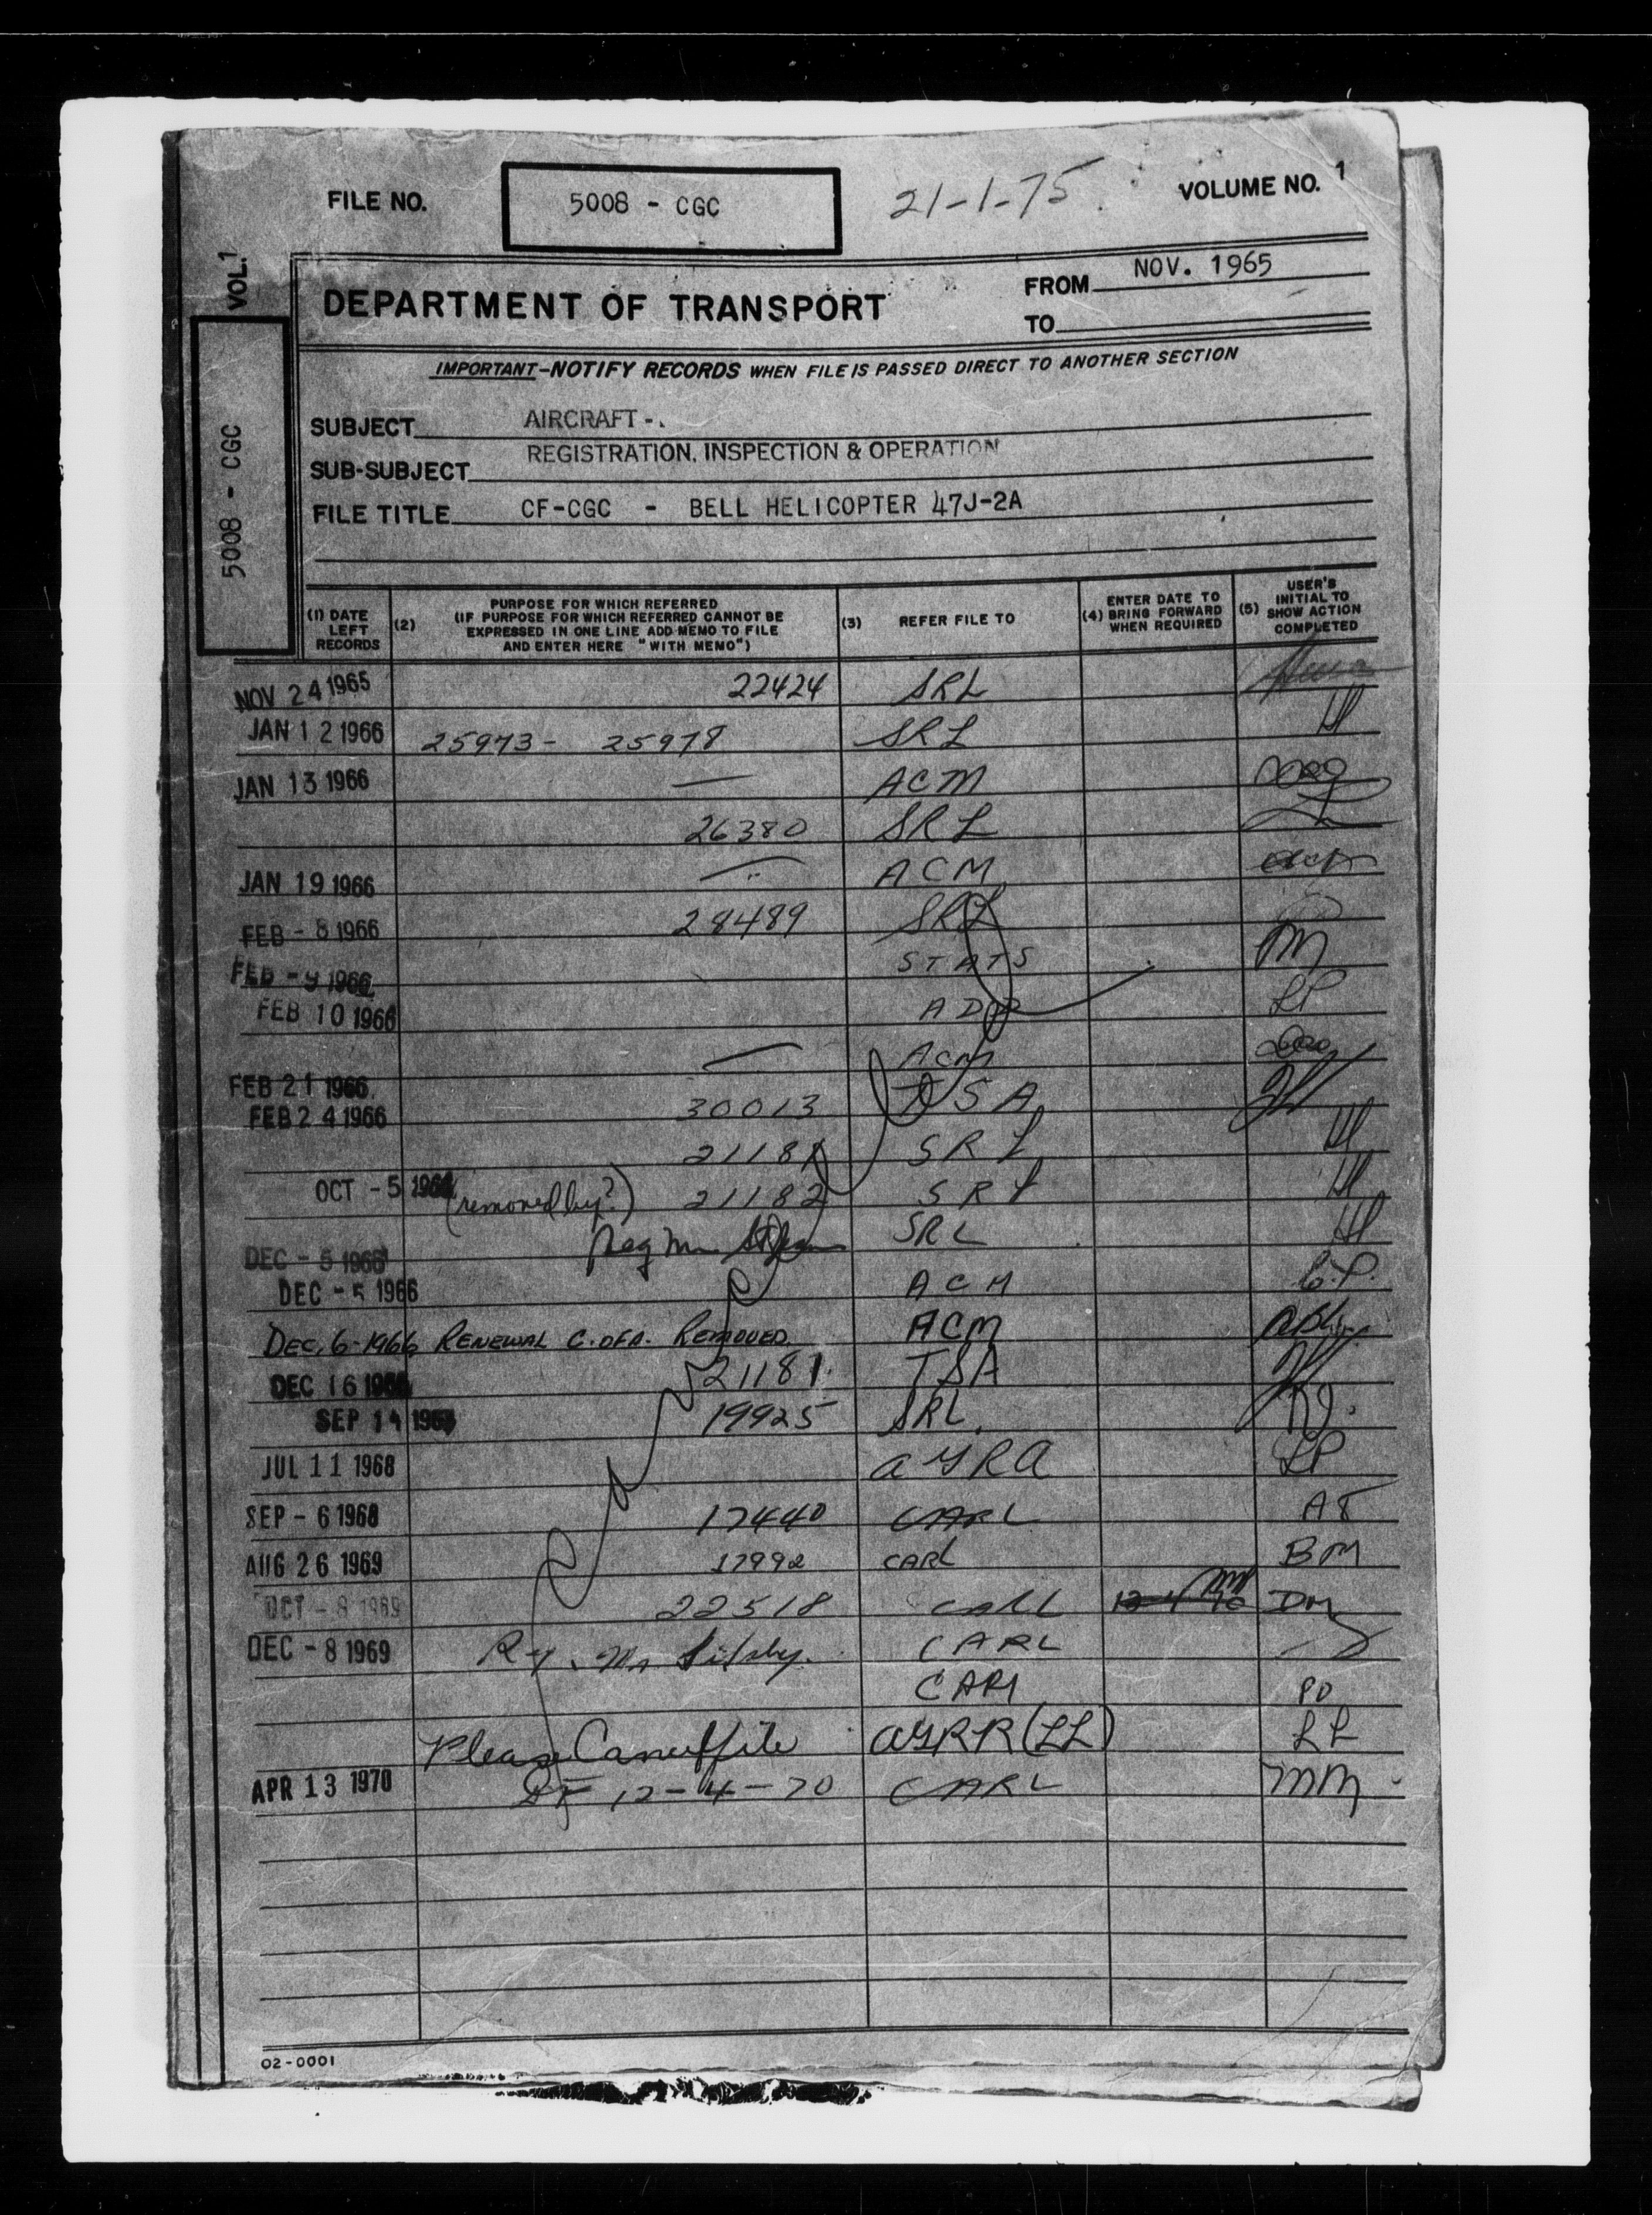 FILE NO. 5008 - CGC 21-1-75 VOLUME NO. 1
VOL. 1
5008 - CGC
DEPARTMENT OF TRANSPORT
FROM NOV. 1965
TO
IMPORTANT-NOTIFY RECORDS WHEN FILE IS PASSED DIRECT TO ANOTHER SECTION
SUBJECT AIRCRAFT -
SUB-SUBJECT REGISTRATION, INSPECTION & OPERATION
FILE TITLE CF-CGC - BELL HELICOPTER 47J-2A
(1) DATE LEFT RECORDS
(2) PURPOSE FOR WHICH REFERRED
(IF PURPOSE FOR WHICH REFERRED CANNOT BE
EXPRESSED IN ONE LINE ADD MEMO TO FILE
AND ENTER HERE "WITH MEMO")
(3) REFER FILE TO
(4) ENTER DATE TO BRING FORWARD WHEN REQUIRED
(5) USER'S INITIAL TO SHOW ACTION COMPLETED
NOV 24 1965 22424 SRL
JAN 12 1966 25973 - 25978 SRL
JAN 13 1966 — ACM
26380 SRL
JAN 19 1966 — ACM
FEB - 8 1966 28489 SRL
FEB - 9 1966 STATS M
FEB 10 1966 LP
— ACM
FEB 21 1966
FEB 24 1966 30013 TSA
21181 SRL
OCT - 5 1966 (removed by?) 21182 SRL
DEC - 5 1966 SRL
DEC - 5 1966 ACM C.P.
DEC. 6-1966 RENEWAL C. OF A. REMOVED. ACM
DEC 16 1966 21181 TSA
SEP 14 19925 SRL RJ.
JUL 11 1968 AYRA LP
SEP - 6 1968 17440 CARL
AUG 26 1969 17992 CARL BM
OCT - 8 1969 22518 CARL DM
DEC - 8 1969 CARL
PD
Please Cancel file AYRR (LL) LL
APR 13 1970 BF 12-4-70 CARL MM
02-0001